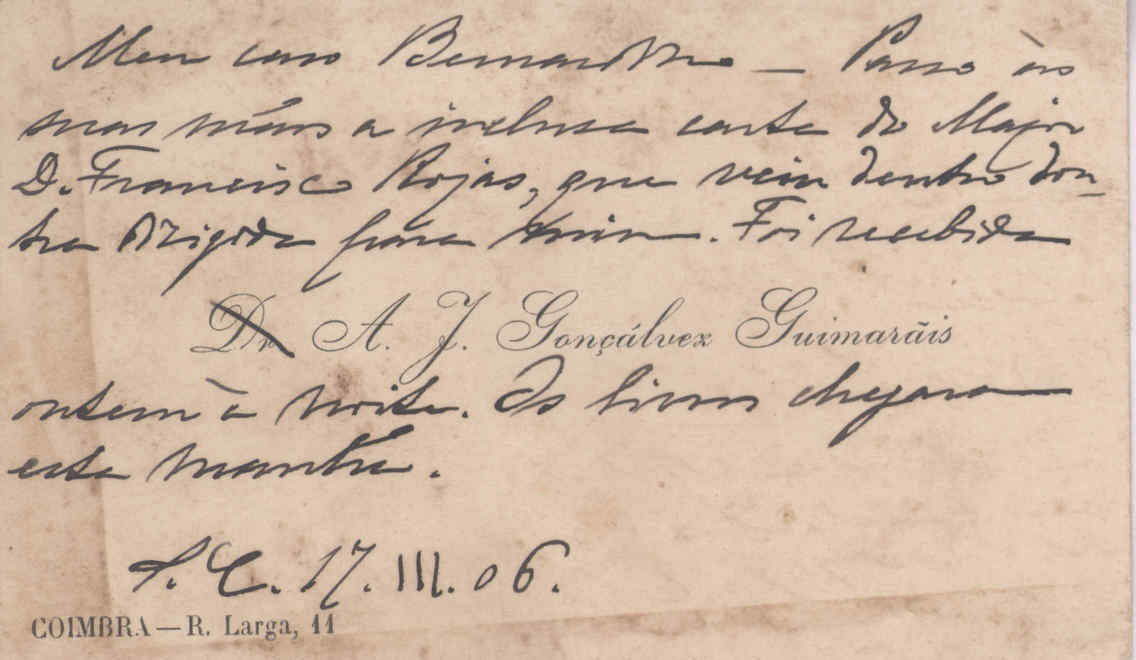 Meu caro Bernardino — Passo às
suas mãos a inclusa carta do Major
D. Francisco Rojas, que vem dentro dou-
tra dirigida para mim. Foi recebida
Dr. A. J. Gonçálvez Guimarãis
ontem à noite. Os livros chegaram
esta manhã.
S. C. 17. III. 06.
COIMBRA — R. Larga, 11